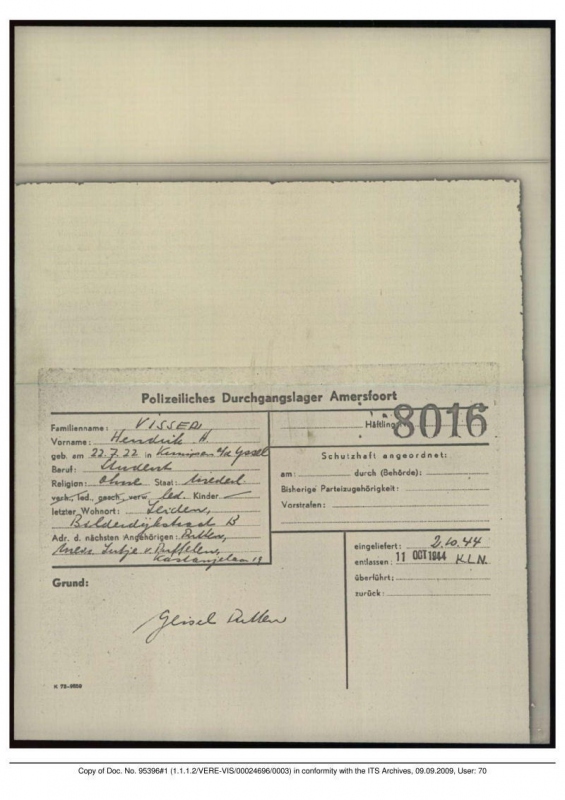 Polizeiliches Durchgangslager Amersfoort
Familienname: VISSER
Vorname: Hendrik H.
geb. am 22.7.22 in a/d
Beruf: Student
Religion: ohne Staat: Niederl
verh., led., gesch., verw. led. Kinder —
letzter Wohnort: Leiden,
Bilderdijkstraat 13
Adr. d. nächsten Angehörigen: Putten,
v.
Kastanjelaan 13
Häftling 8016
Schutzhaft angeordnet:
am: durch (Behörde):
Bisherige Parteizugehörigkeit:
Vorstrafen:
eingeliefert: 2.10.44
entlassen: 11 OCT 1944 KLN.
überführt:
zurück:
Grund:
Geisel Putten
Copy of Doc. No. 95396#1 (1.1.1.2/VERE-VIS/00024696/0003) in conformity with the ITS Archives, 09.09.2009, User: 70